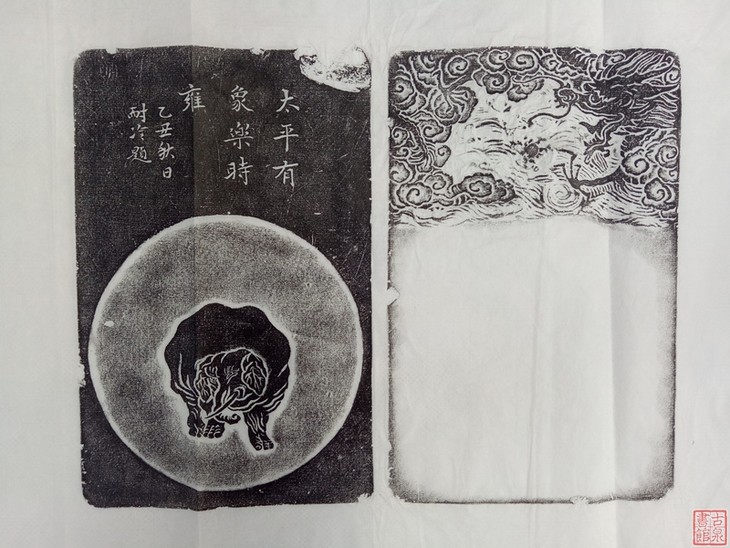 太平有
象樂時
雍
乙丑秋日
耐冷題
古泉
書館